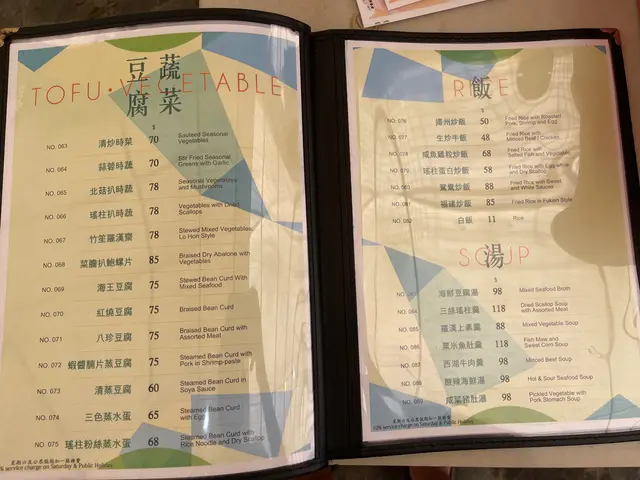 豆腐 蔬菜
TOFU · VEGETABLE
$
NO. 063 清炒時菜 70 Sauteed Seasonal Vegetables
NO. 064 蒜蓉時蔬 70 Stir Fried Seasonal Greens with Garlic
NO. 065 北菇扒時蔬 78 Seasonal Vegetables and Mushrooms
NO. 066 瑤柱扒時蔬 78 Vegetables with Dried Scallops
NO. 067 竹笙羅漢齋 78 Stewed Mixed Vegetables Lo Hon Style
NO. 068 菜膽扒鮑螺片 85 Braised Dry Abalone with Vegetables
NO. 069 海王豆腐 75 Stewed Bean Curd With Mixed Seafood
NO. 070 紅燒豆腐 75 Braised Bean Curd
NO. 071 八珍豆腐 75 Braised Bean Curd with Assorted Meat
NO. 072 蝦醬腩片蒸豆腐 75 Steamed Bean Curd with Pork in Shrimp-paste
NO. 073 清蒸豆腐 60 Steamed Bean Curd in Soya Sauce
NO. 074 三色蒸水蛋 65 Steamed Bean Curd with Egg
NO. 075 瑤柱粉絲蒸水蛋 68 Steamed Bean Curd with Rice Noodle and Dry Scallop
星期六及公眾假期加一服務費
% service charge on Saturday & Public Holidays
飯
RICE
$
NO. 076 揚州炒飯 50 Fried Rice with Roasted Pork, Shrimp and Egg
NO. 077 生炒牛飯 48 Fried Rice with Minced Beef / Chicken
NO. 078 咸魚雞粒炒飯 68 Fried Rice with Salted Fish and Vegetable
NO. 079 瑤柱蛋白炒飯 58 Fried Rice with Egg white and Dry Scallop
NO. 080 鴛鴦炒飯 88 Fried Rice with Sweet and White Sauces
NO. 081 福建炒飯 85 Fried Rice in Fukien Style
NO. 082 白飯 11 Rice
湯
SOUP
$
海鮮豆腐湯 98 Mixed Seafood Broth
NO. 084 三絲瑤柱羹 118 Dried Scallop Soup with Assorted Meat
NO. 085 羅漢上素羹 88 Mixed Vegetable Soup
NO. 086 粟米魚肚羹 118 Fish Maw and Sweet Corn Soup
NO. 087 西湖牛肉羹 98 Minced Beef Soup
NO. 088 酸辣海鮮湯 98 Hot & Sour Seafood Soup
NO. 089 咸菜豬肚湯 98 Pickled Vegetable with Pork Stomach Soup
星期六及公眾假期加一服務費
10% service charge on Saturday & Public Holidays